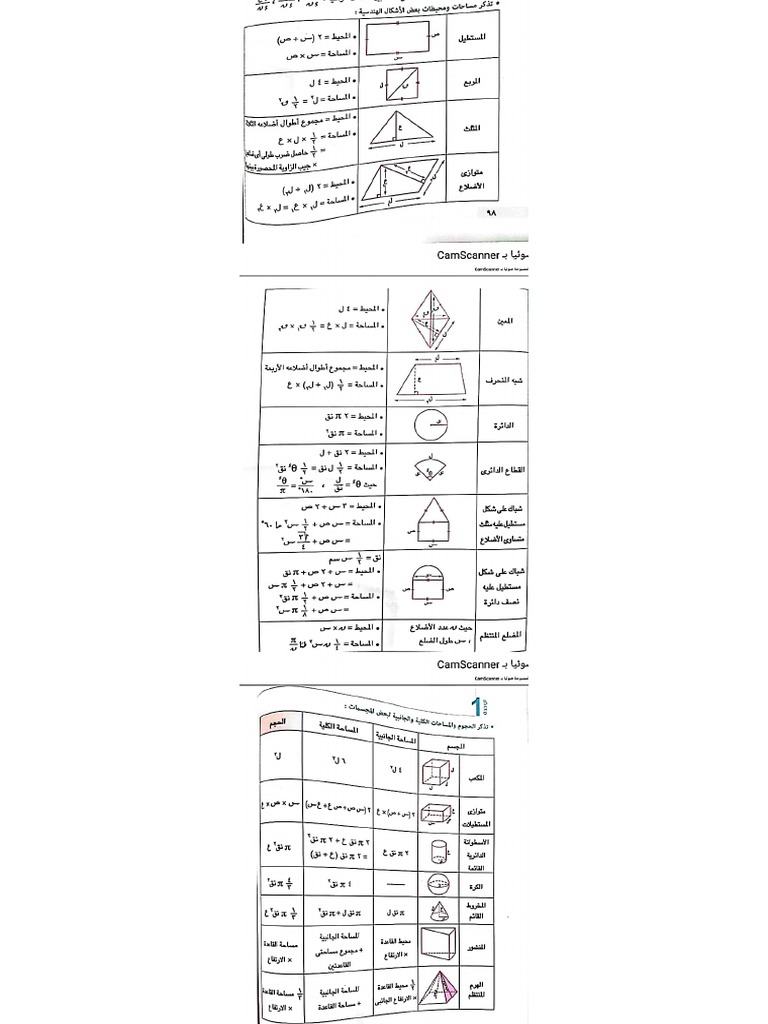 • تذكر مساحات ومحيطات بعض الأشكال الهندسية :
المستطيل
• المحيط = ٢ (س + ص)
• المساحة = س × ص
المربع
• المحيط = ٤ ل
• المساحة = ل² = ١/٢ ق²
المثلث
• المحيط = مجموع أطوال أضلاعه الثلاثة
• المساحة = ١/٢ × ل × ع
= ١/٢ حاصل ضرب طولى أى ضلعين
× جيب الزاوية المحصورة بينهما
متوازى
الأضلاع
• المحيط = ٢ (ل₁ + ل₂)
• المساحة = ل₁ × ع₁ = ل₂ × ع₂
٩٨
ضوئيا بـ CamScanner
الممسوحة ضوئيا بـ CamScanner
المعين
• المحيط = ٤ ل
• المساحة = ل × ع = ١/٢ ق₁ × ق₂
شبه المنحرف
• المحيط = مجموع أطوال أضلاعه الأربعة
• المساحة = ١/٢ (ل₁ + ل₂) × ع
الدائرة
• المحيط = ٢ π نق
• المساحة = π نق²
القطاع الدائرى
• المحيط = ٢ نق + ل
• المساحة = ١/٢ ل نق = ١/٢ θ نق²
حيث θ = ل/نق ، س°/١٨٠° = θ/π
شباك على شكل
مستطيل عليه مثلث
متساوى الأضلاع
• المحيط = ٣ س + ٢ ص
• المساحة = س ص + ١/٢ س² حا ٦٠°
= س ص + √٣/٤ س²
شباك على شكل
مستطيل عليه
نصف دائرة
نق = ١/٢ س سم
• المحيط = س + ٢ ص + π نق
= س + ٢ ص + ١/٢ π س
• المساحة = س ص + ١/٢ π نق²
= س ص + ١/٨ π س²
المضلع المنتظم
حيث ن عدد الأضلاع
، س طول الضلع
• المحيط = ن × س
• المساحة = ١/٤ ن س² طتا π/ن
ضوئيا بـ CamScanner
الممسوحة ضوئيا بـ CamScanner
1
الوحدة
• تذكر الحجوم والمساحات الكلية والجانبية لبعض المجسمات :
الجسم
المساحة الجانبية
المساحة الكلية
الحجم
المكعب
٤ ل²
٦ ل²
ل³
متوازى
المستطيلات
٢ (س + ص) × ع
٢ (س ص + ص ع + ع س)
س × ص × ع
الأسطوانة
الدائرية
القائمة
٢ π نق ع
٢ π نق ع + ٢ π نق²
= ٢ π نق (ع + نق)
π نق² ع
الكرة
——
٤ π نق²
٤/٣ π نق³
المخروط
القائم
π نق ل
π نق ل + π نق²
١/٣ π نق² ع
المنشور
محيط القاعدة
× الارتفاع
المساحة الجانبية
+ مجموع مساحتى
القاعدتين
مساحة القاعدة
× الارتفاع
الهرم
المنتظم
١/٢ محيط القاعدة
× الارتفاع الجانبى
المساحة الجانبية
+ مساحة القاعدة
١/٣ مساحة القاعدة
× الارتفاع